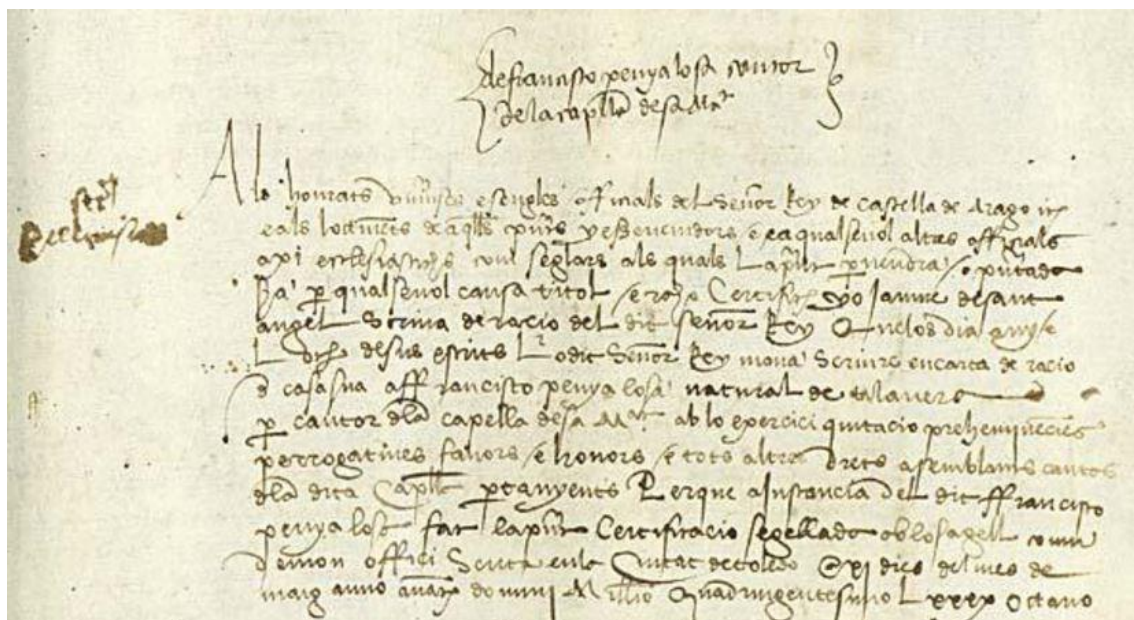 de francisco penyalosa cantor
de la capllã de sa Mat
Als honrats e sengles officials del Senyor Rey de Castella de Arago
e als lochtinents de aqlls e esdevenidors e a qualsevol altres officials
axi ecclesiastichs com seglars als quals la pnt pervendra / o pntada
sia per qualsevol causa titol / e raho Certifich yo Jaume de sant
angel Scriva de racio del dit Senyor Rey Que los dia any / e
loch desus escrits lo dit Senyor Rey mana scriure en carta de racio
de casa sua a ffrancisco penyalosa natural de talavera
per cantor dla capella de sa Mat ab lo exercici quitacio preheminencies
perrogatives favors / e honors / e tots altres drets a semblants cantors
dla dita Capll ptanyents Perque a Instancia del dit ffrancisco
penyalosa fac la pnt Certificacio segellada ab lo sagell comu
de mon offici Scrita en la Ciutat de toledo a xi dies del mes de
maig anno a nat domini Millio Quadringentesimo Lxxxx Octavo